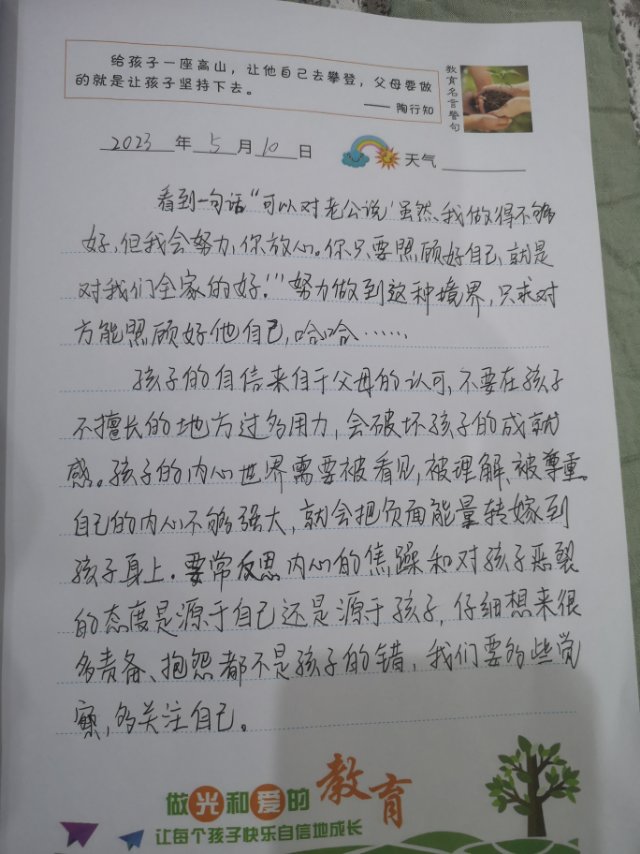 给孩子一座高山，让他自己去攀登，父母要做
的就是让孩子坚持下去。
—— 陶行知
教育名言警句
2023 年 5 月 10 日 天气
看到一句话“可以对老公说‘虽然我做得不够
好，但我会努力，你放心。你只要照顾好自己，就是
对我们全家的好！’”努力做到这种境界，只求对
方能照顾好他自己，哈哈……
孩子的自信来自于父母的认可，不要在孩子
不擅长的地方过多用力，会破坏孩子的成就
感。孩子的内心世界需要被看见，被理解、被尊重。
自己的内心不够强大，就会把负面能量转嫁到
孩子身上。要常反思内心的焦躁和对孩子恶裂
的态度是源于自己还是源于孩子，仔细想来很
多责备、抱怨都不是孩子的错，我们要多些觉
察，多关注自己。
做光和爱的教育
让每个孩子快乐自信地成长